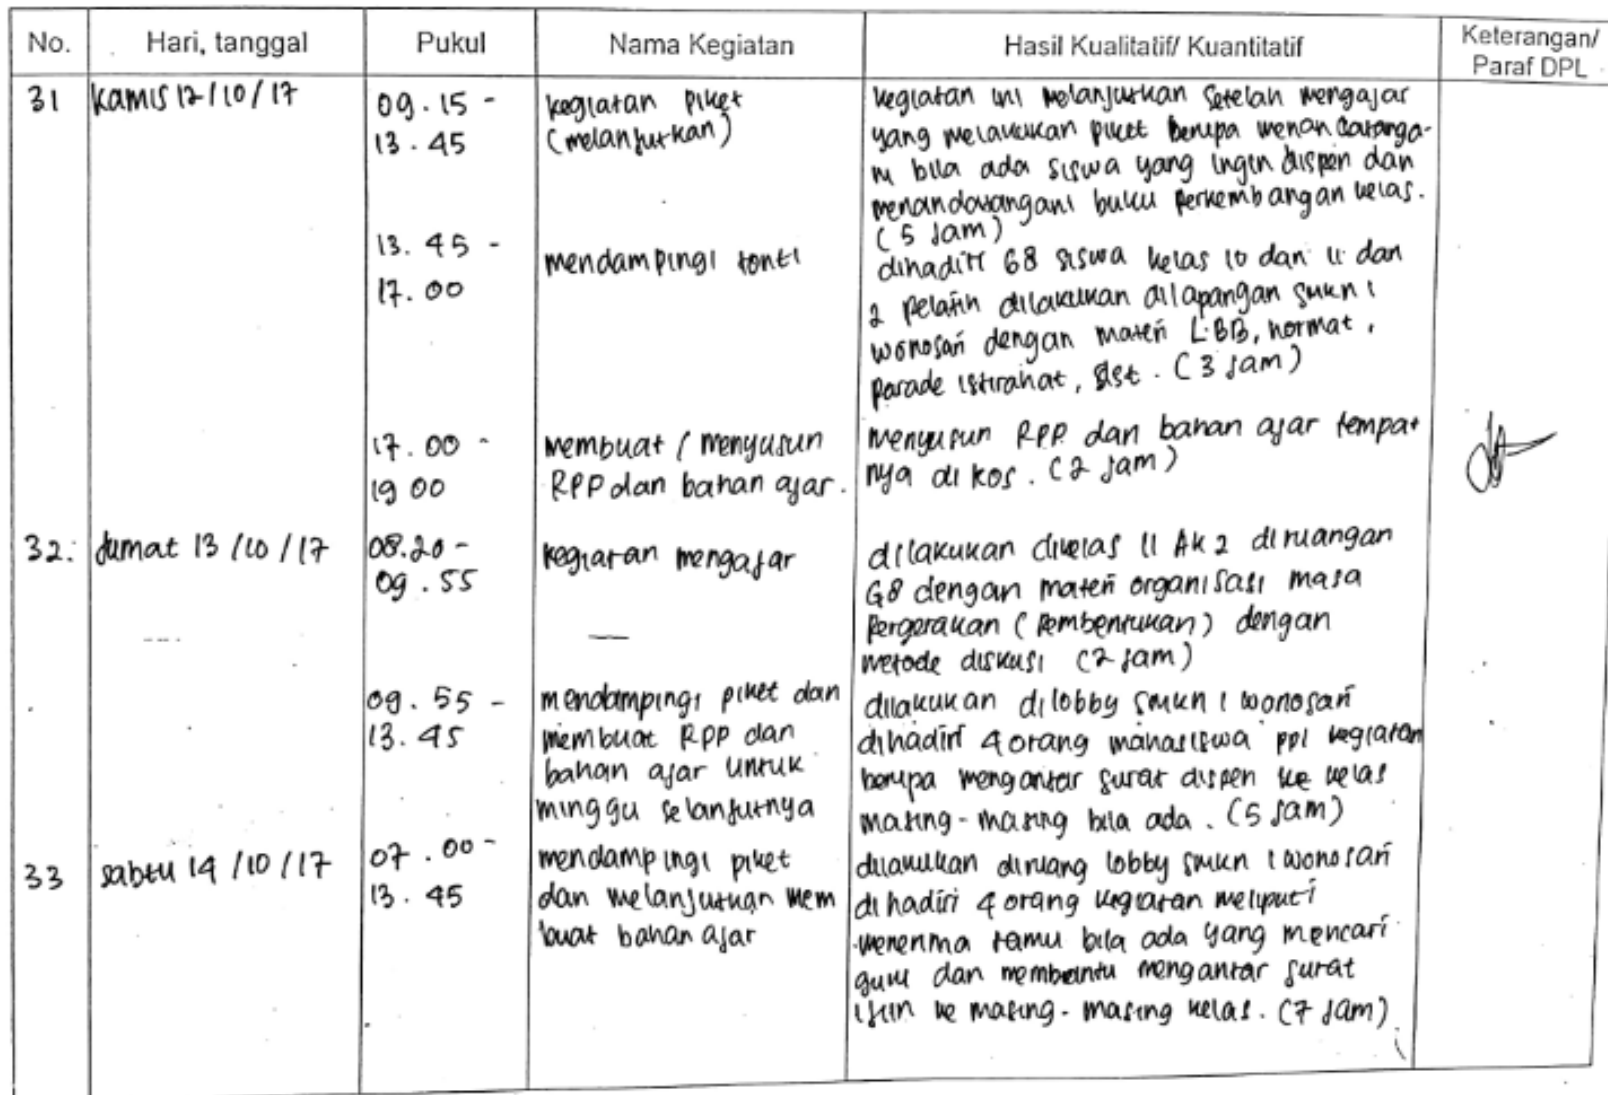 No. Hari, tanggal Pukul Nama Kegiatan Hasil Kualitatif/ Kuantitatif Keterangan/ Paraf DPL
31 Kamis 12/10/17
09.15 -
13.45
kegiatan piket
(melanjutkan)
kegiatan ini melanjutkan setelah mengajar
yang melakukan piket berupa menandatanga-
ni bila ada siswa yang ingin dispen dan
menandatangani buku perkembangan kelas.
(5 jam)
13.45 -
17.00
mendampingi tonti
dihadiri 68 siswa kelas 10 dan 11 dan
2 pelatih dilakukan dilapangan smkn 1
wonosari dengan materi LBB, hormat,
parade istirahat, dst. (3 jam)
17.00 -
19 00
membuat / menyusun
RPP dan bahan ajar.
menyusun RPP dan bahan ajar tempat
nya di kos. (2 jam)
32. Jumat 13/10/17
08.20 -
09.55
kegiatan mengajar
dilakukan dikelas 11 Ak 2 diruangan
G8 dengan materi organisasi masa
pergerakan (pembentukan) dengan
metode diskusi (2 jam)
09.55 -
13.45
mendampingi piket dan
membuat RPP dan
bahan ajar untuk
minggu selanjutnya
dilakukan dilobby smkn 1 wonosari
dihadiri 4 orang mahasiswa ppl kegiatan
berupa mengantar surat dispen ke kelas
masing-masing bila ada. (5 jam)
33 sabtu 14/10/17
07.00 -
13.45
mendampingi piket
dan melanjutkan mem
buat bahan ajar
dilakukan diruang lobby smkn 1 wonosari
dihadiri 4 orang kegiatan meliputi
menerima tamu bila ada yang mencari
guru dan membantu mengantar surat
ijin ke masing-masing kelas. (7 jam)